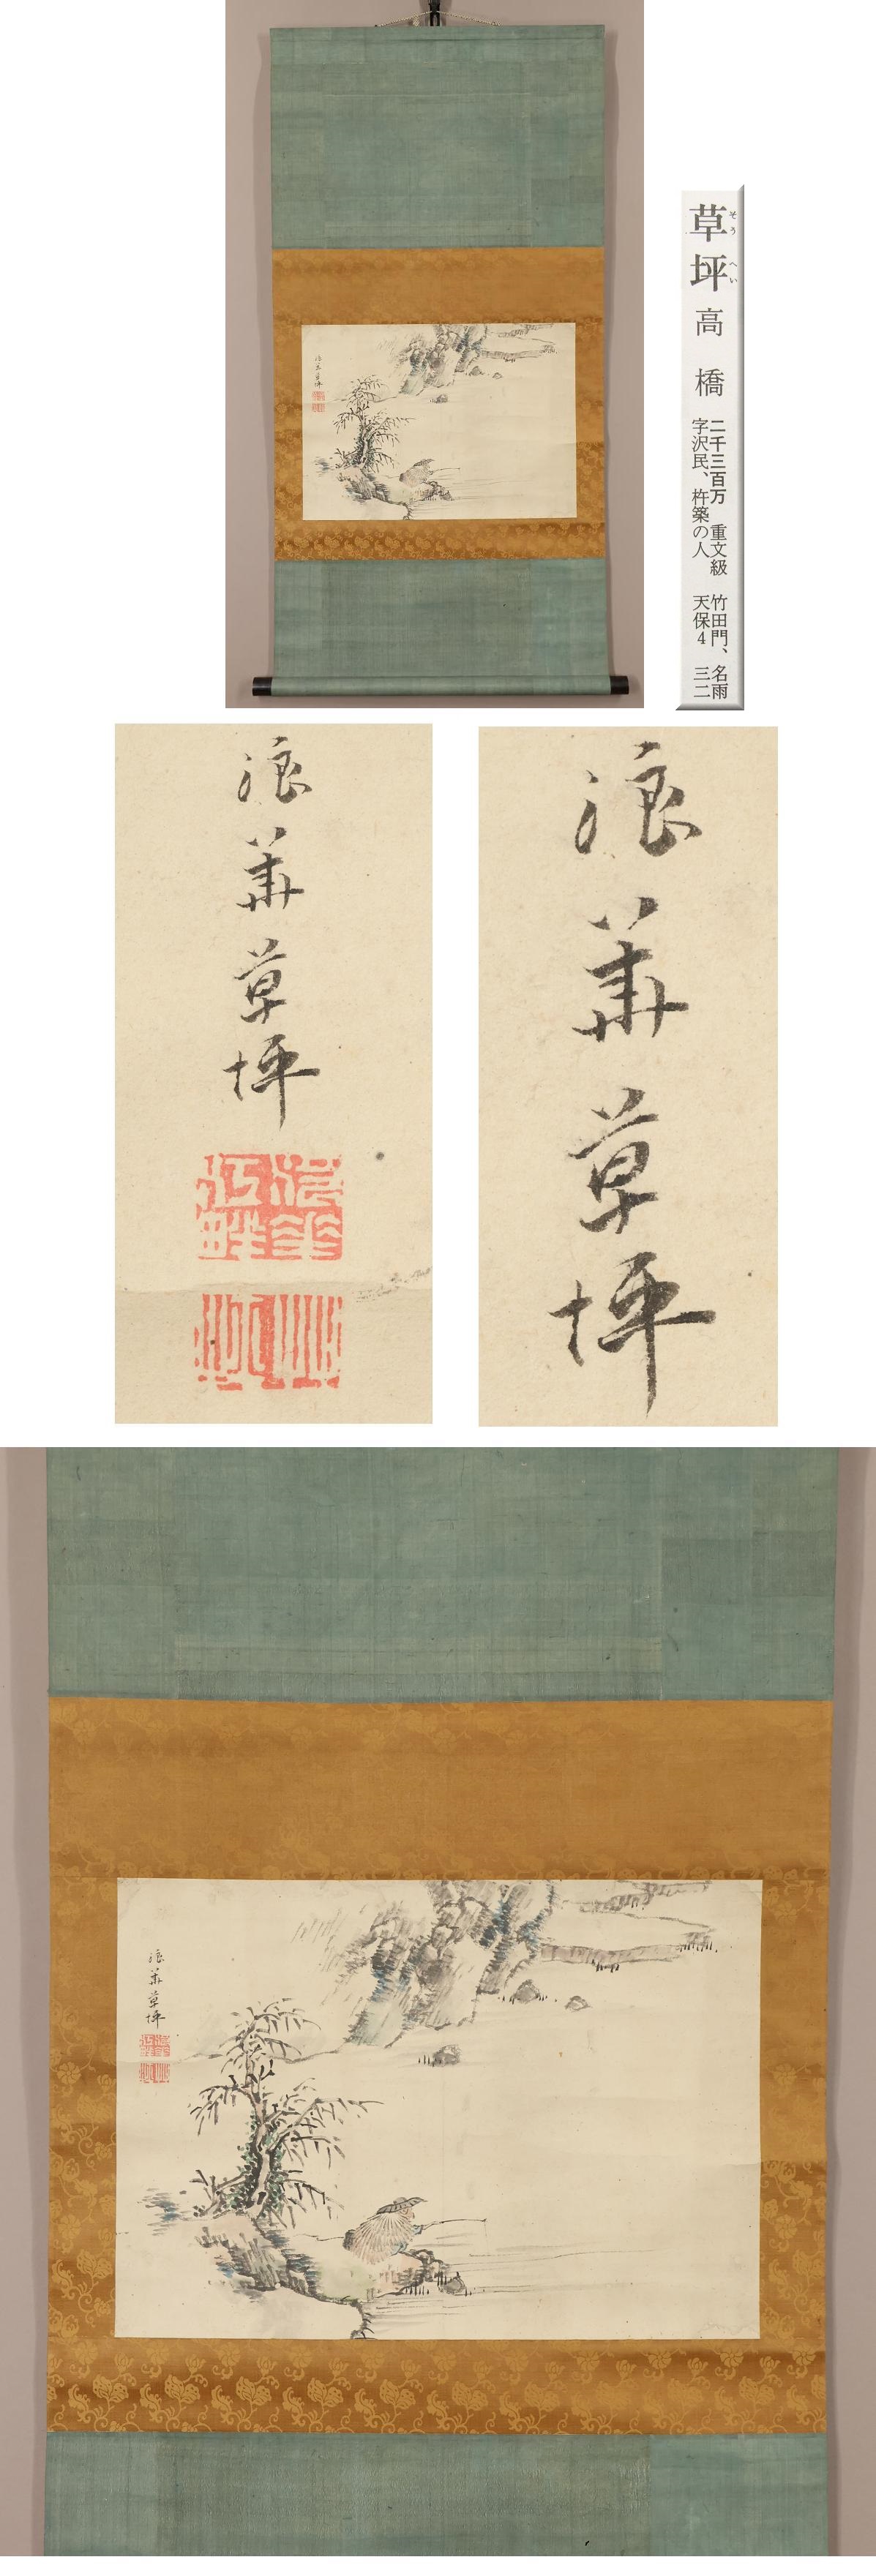 草坪 高橋
そうへい
二千三百万 重文級 竹田門、名雨
字沢民、杵築の人 天保4 三二
浪華草坪
浪華草坪
浪華草坪
浪華草坪